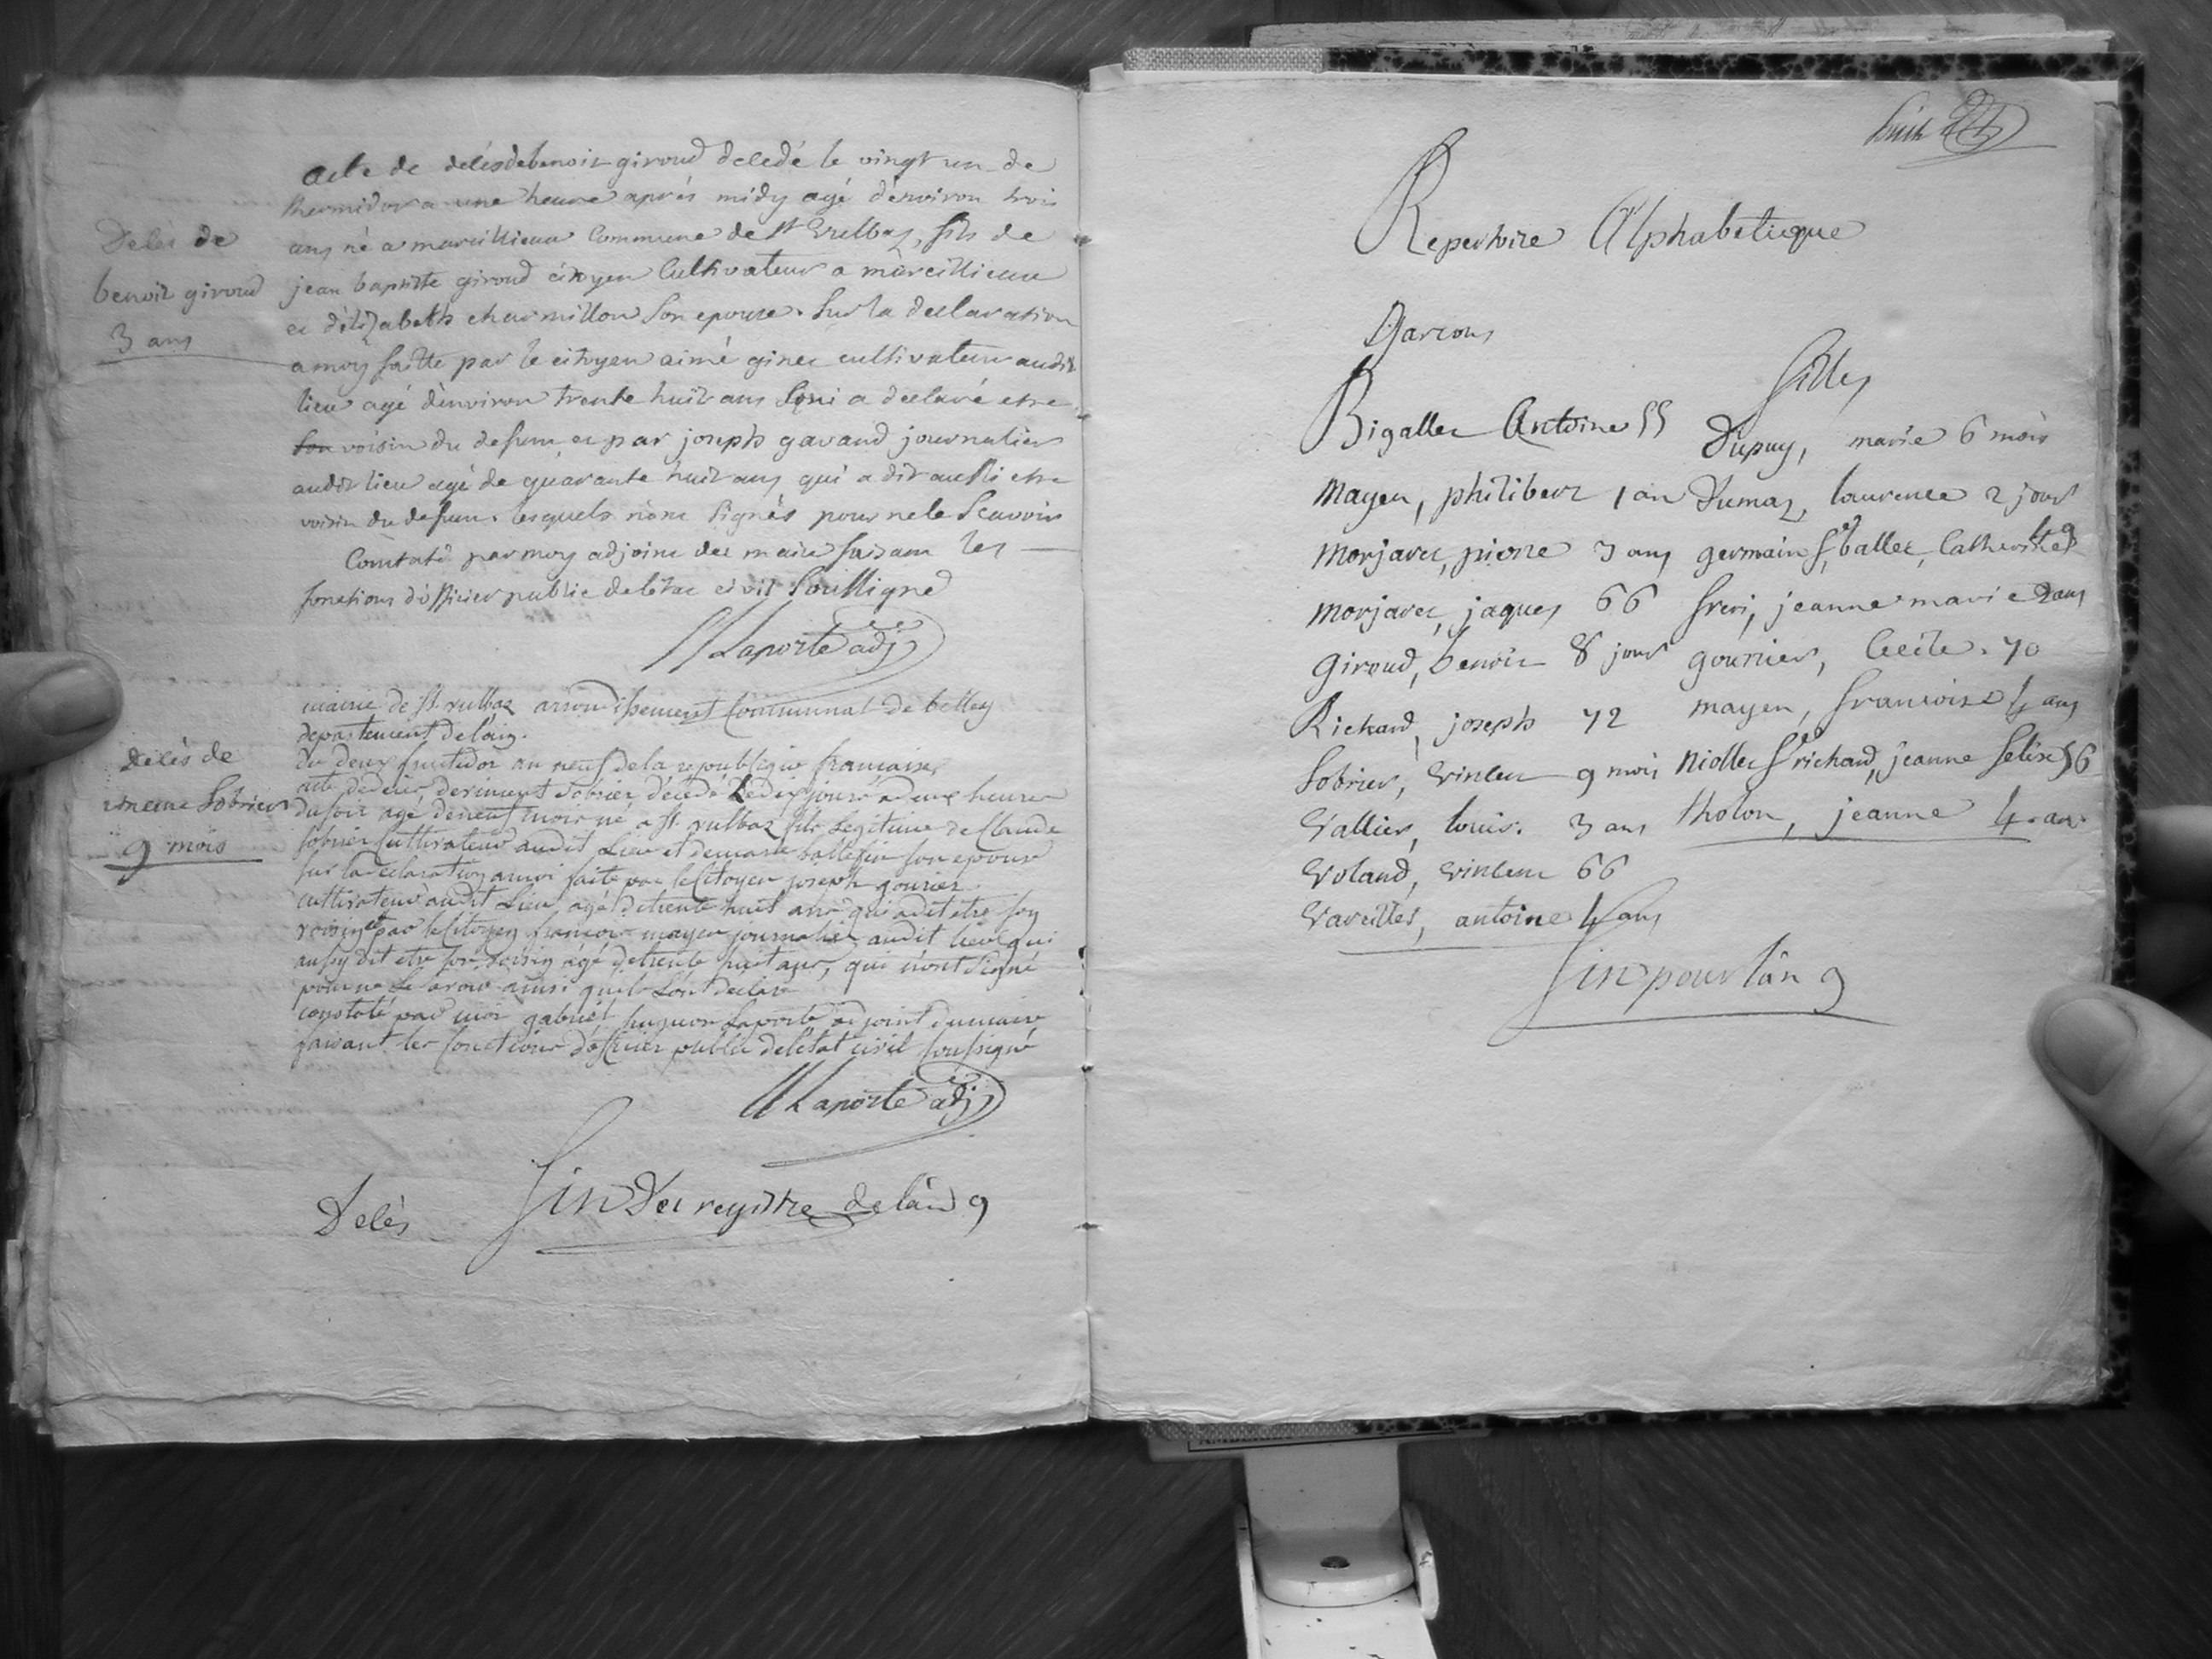 Delés de
benoit giroud
3 ans
acte de delés de benoit giroud deledé le vingt un de
thermidor a une heure aprés midy agé d'environ trois
ans né a marcillieux Commune de St Vulbaz, fils de
jean baptiste giroud citoyen Cultivateur a marcillieux
et d'élizabeth charmillon Son epouse. Sur la declaration
a moy faitte par le citoyen aimé ginet cultivateur audit
lieu agé d'environ trente huit ans qui a declaré etre
son voisin du defunt et par joseph gavand journalier
audit lieu agé de quarante huit ans qui a dit aussi etre
voisin du defunt. lesquels n'ont Signés pour ne le Scavoir
Contaté par moy adjoint du maire faisant les
fonctions d'officier public de letat civil Soussigné
Laporte adj
delés de
vincent Sobrier
9 mois
mairie de St vulbaz arrondissement Communal de belley
departement de l'ain.
du deux fructidor an neuf de la republique francaise
acte de deces de vincent Sobrier décédé à deux heures
du soir agé de neuf mois né a St vulbaz fils Legitime de Claude
Sobrier Cultivateur audit Lieu et de son epouse
sur la declaration a moi faite par le Citoyen joseph gourier
cultivateur audit Lieu agé de trente huit ans qui a dit etre son
voisin et par le Citoyen francois mayen journalier audit lieu qui
aussy dit etre son voisin agé de trente huit ans, qui n'ont Signé
pour ne le savoir ainsi qu'ils L'ont declaré
constaté par moi gabriel Laporte adjoint du maire
faisant les fonctions d'officier public de l'etat civil soussigné
Laporte adj
Delés Fin Du registre de l'an 9
huit
Repertoire Alphabetique
Garcons
Filles
Bigallet Antoine 55
Dupuy, marie 6 mois
Mayen, philibert 1 an
Dumas, laurence 2 jours
Morjaret, pierre 3 ans
germain fe ballet, Catherine
Morjaret, jaques 66
freri, jeanne marie 2 ans
Giroud, benoit 8 jours
gourier, Cecile. 70
Richard, joseph 72
mayen, francoise 4 ans
Sobrier, Vincent 9 mois
Niollet fe richard, jeanne felise 56
Vallier, louis. 3 ans
tholon, jeanne 4 ans
Voland, Vincent 66
Vareilles, antoine 4 ans
Fin pour l'an 9